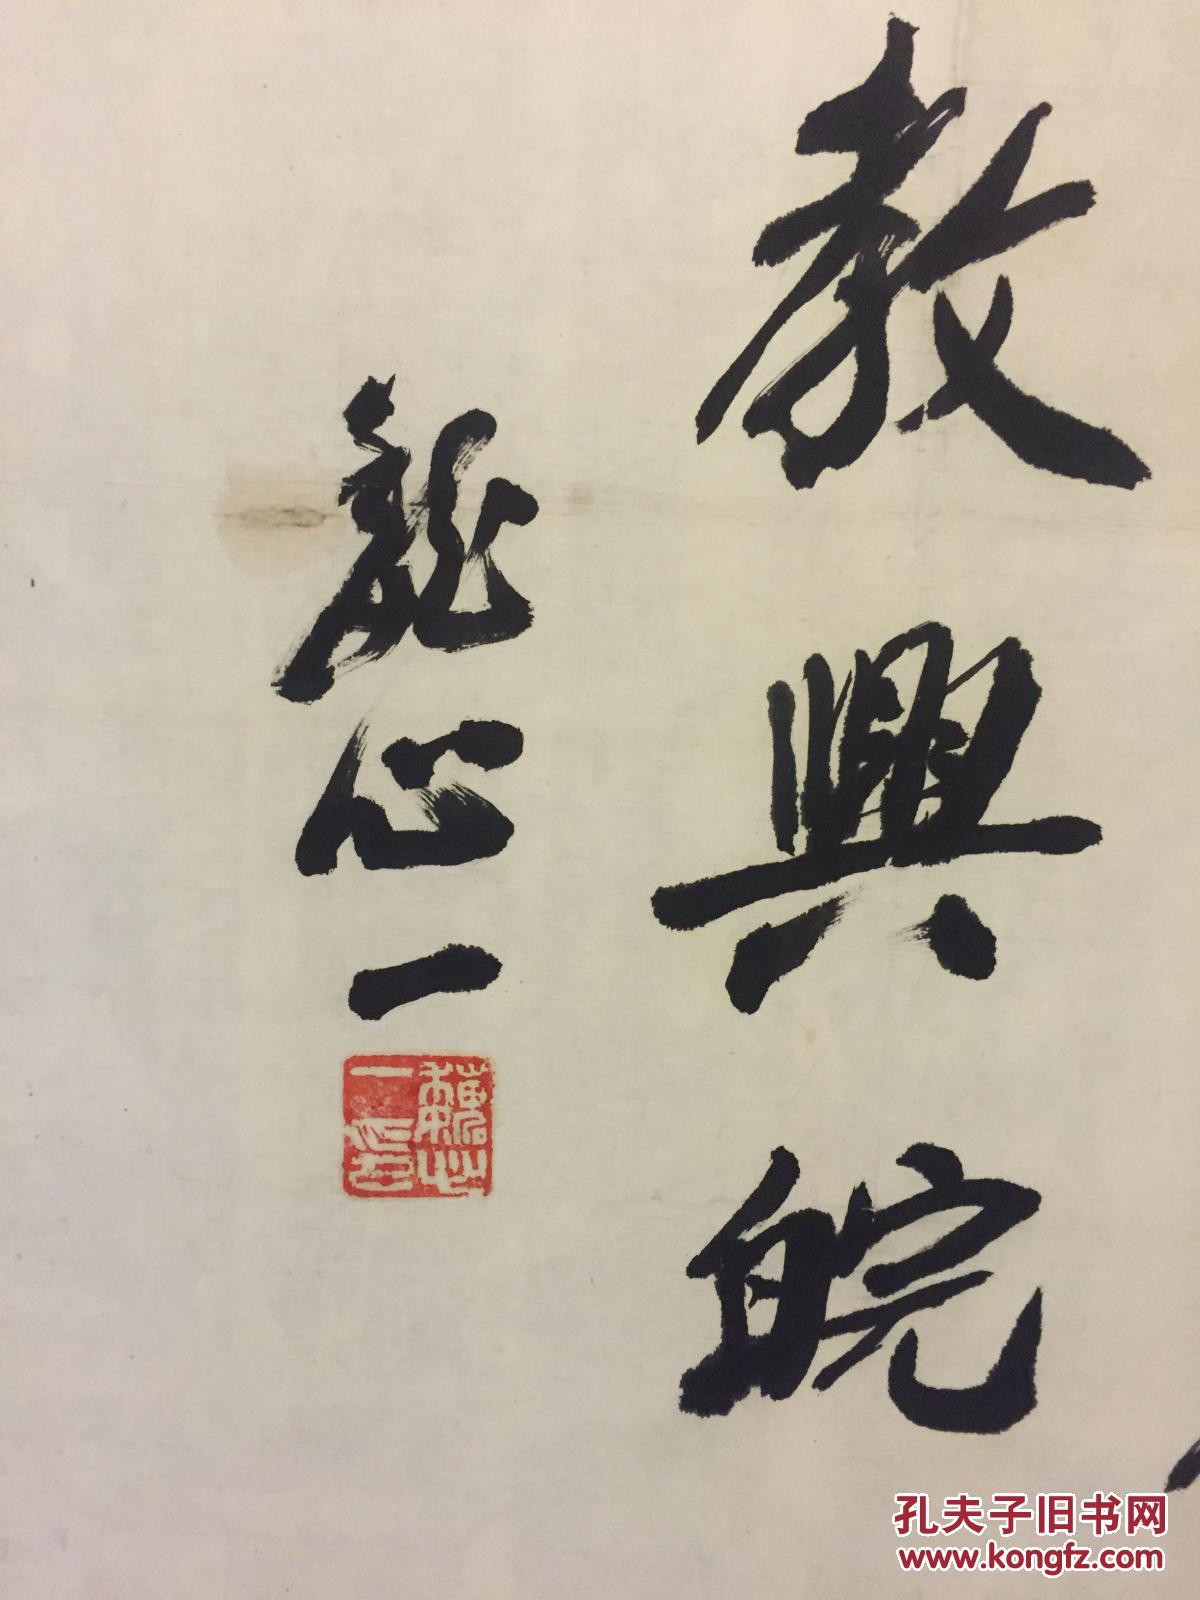 教興皖
魏心一
魏心一印
孔夫子旧书网
www.kongfz.com